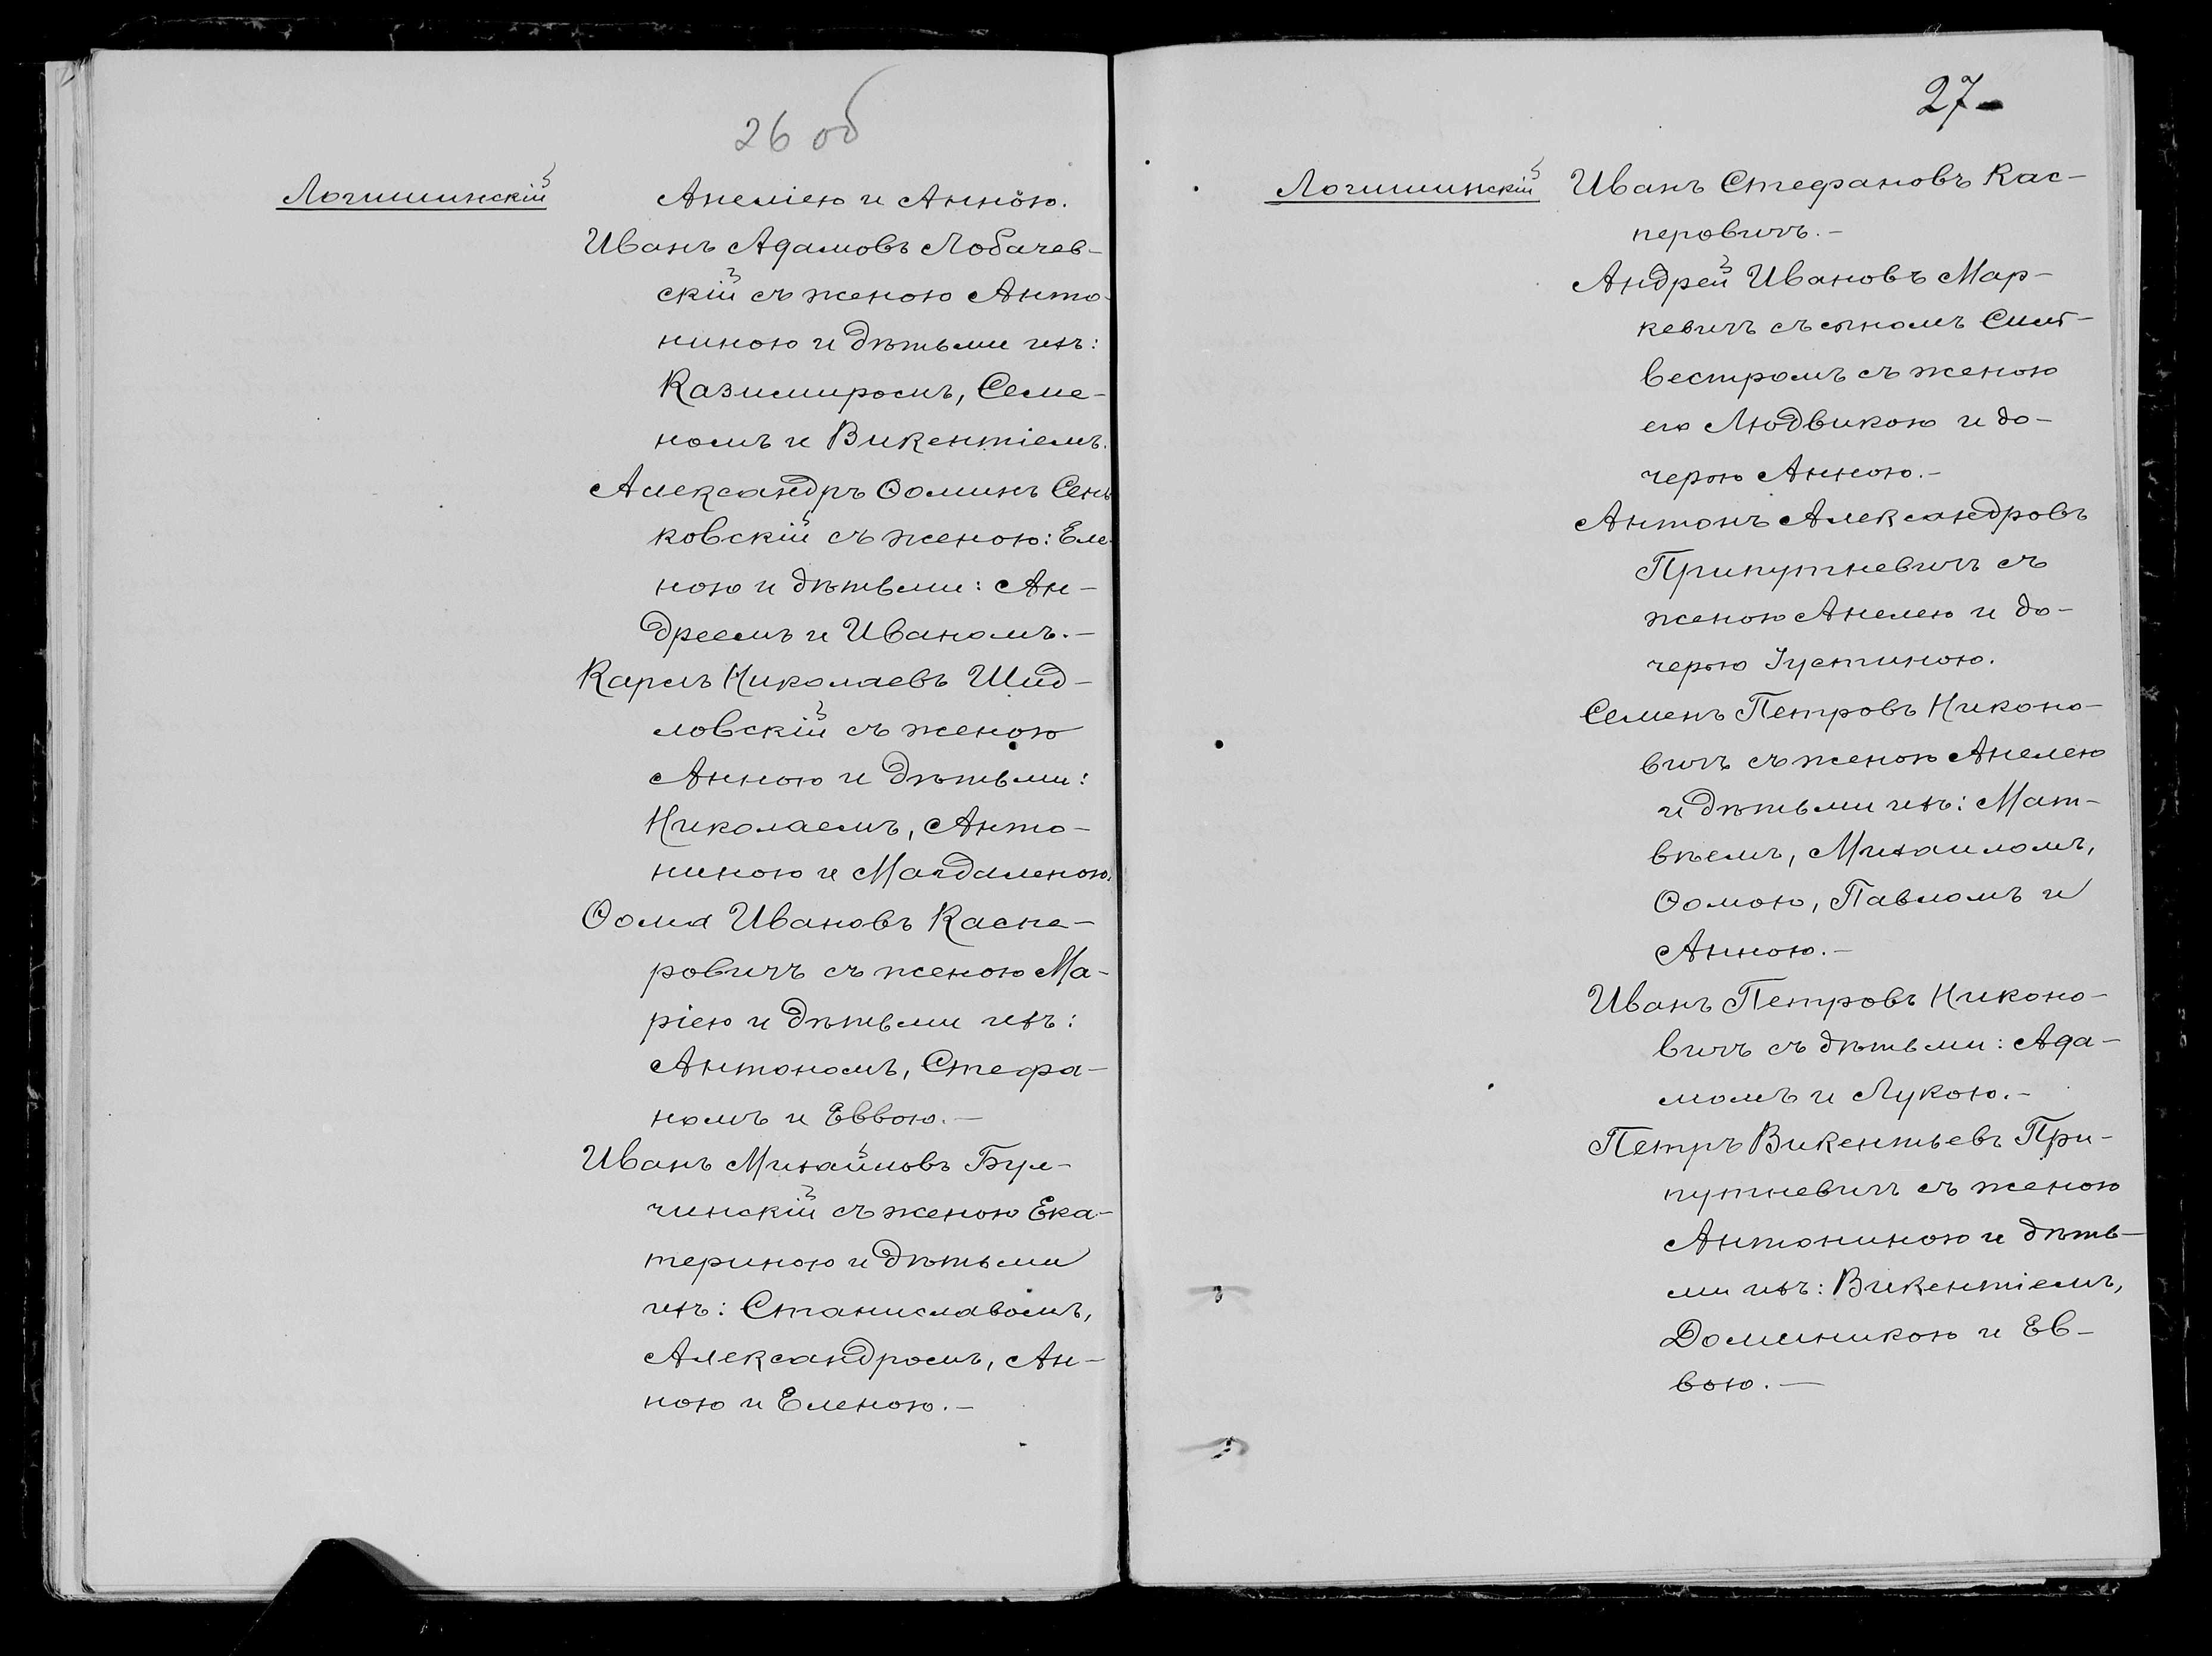 26 об
Логишинскій
Анеліею и Анною.
Иванъ Адамовъ Лобачев-
скій съ женою Анто-
ниною и дѣтьми ихъ:
Казимиромъ, Семе-
номъ и Викентіемъ.
Александръ Ѳоминъ Сень
ковскій съ женою: Еле-
ною и дѣтьми: Ан-
дреемъ и Иваномъ.-
Карлъ Николаевъ Шид-
ловскій съ женою
Анною и дѣтьми:
Николаемъ, Анто-
ниною и Магдаленою.
Ѳома Ивановъ Каспе-
ровичъ съ женою Ма-
ріею и дѣтьми ихъ:
Антономъ, Стефа-
номъ и Еввою.-
Иванъ Михайловъ Бул-
чинскій съ женою Ека-
териною и дѣтьми
ихъ: Станиславомъ,
Александромъ, Ан-
ною и Еленою.-
27-
Логишинскій
Иванъ Стефановъ Кас-
перовичъ.-
Андрей Ивановъ Мар-
кевичъ съ сыномъ Силь-
вестромъ съ женою
его Людвикою и до-
черью Анною.-
Антонъ Александровъ
Припутневичъ съ
женою Анелею и до-
черью Іустиною.
Семенъ Петровъ Никоно-
вичъ съ женою Анелею
и дѣтьми ихъ: Мат-
вѣемъ, Михаиломъ,
Ѳомою, Павломъ и
Анною.-
Иванъ Петровъ Никоно-
вичъ съ дѣтьми: Ада-
момъ и Лукою.-
Петръ Викентьевъ При-
путневичъ съ женою
Антониною и дѣть-
ми ихъ: Викентіемъ,
Доминикою и Ев-
вою.-